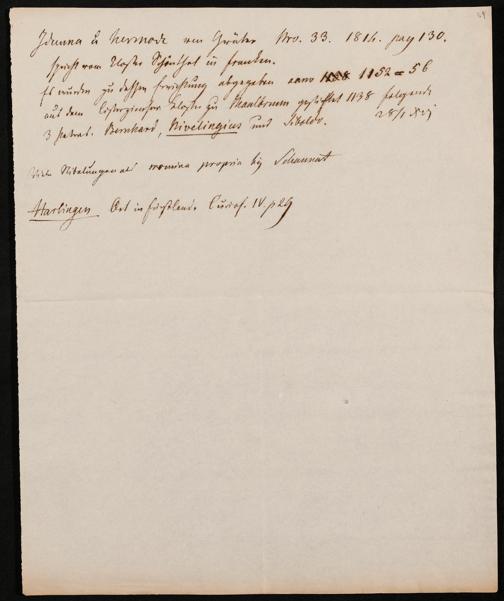 Idunna u Hermode von Gräter Nro. 33. 1814. pag 130.
spricht vom Kloster Schönthal in Franken.
Es wurden zu dessen Errichtung abgegeben anno 1152 = 56
aus dem Cisterzienser Kloster zu Maulbrunn gestiftet 1138 folgende
3 patres. Bernhard, Nivelingius und Sibold.
Viele Nibelungen als nomina propria bei Schannat
Harlingen Ort in Frieslande Curios. IV. p 29